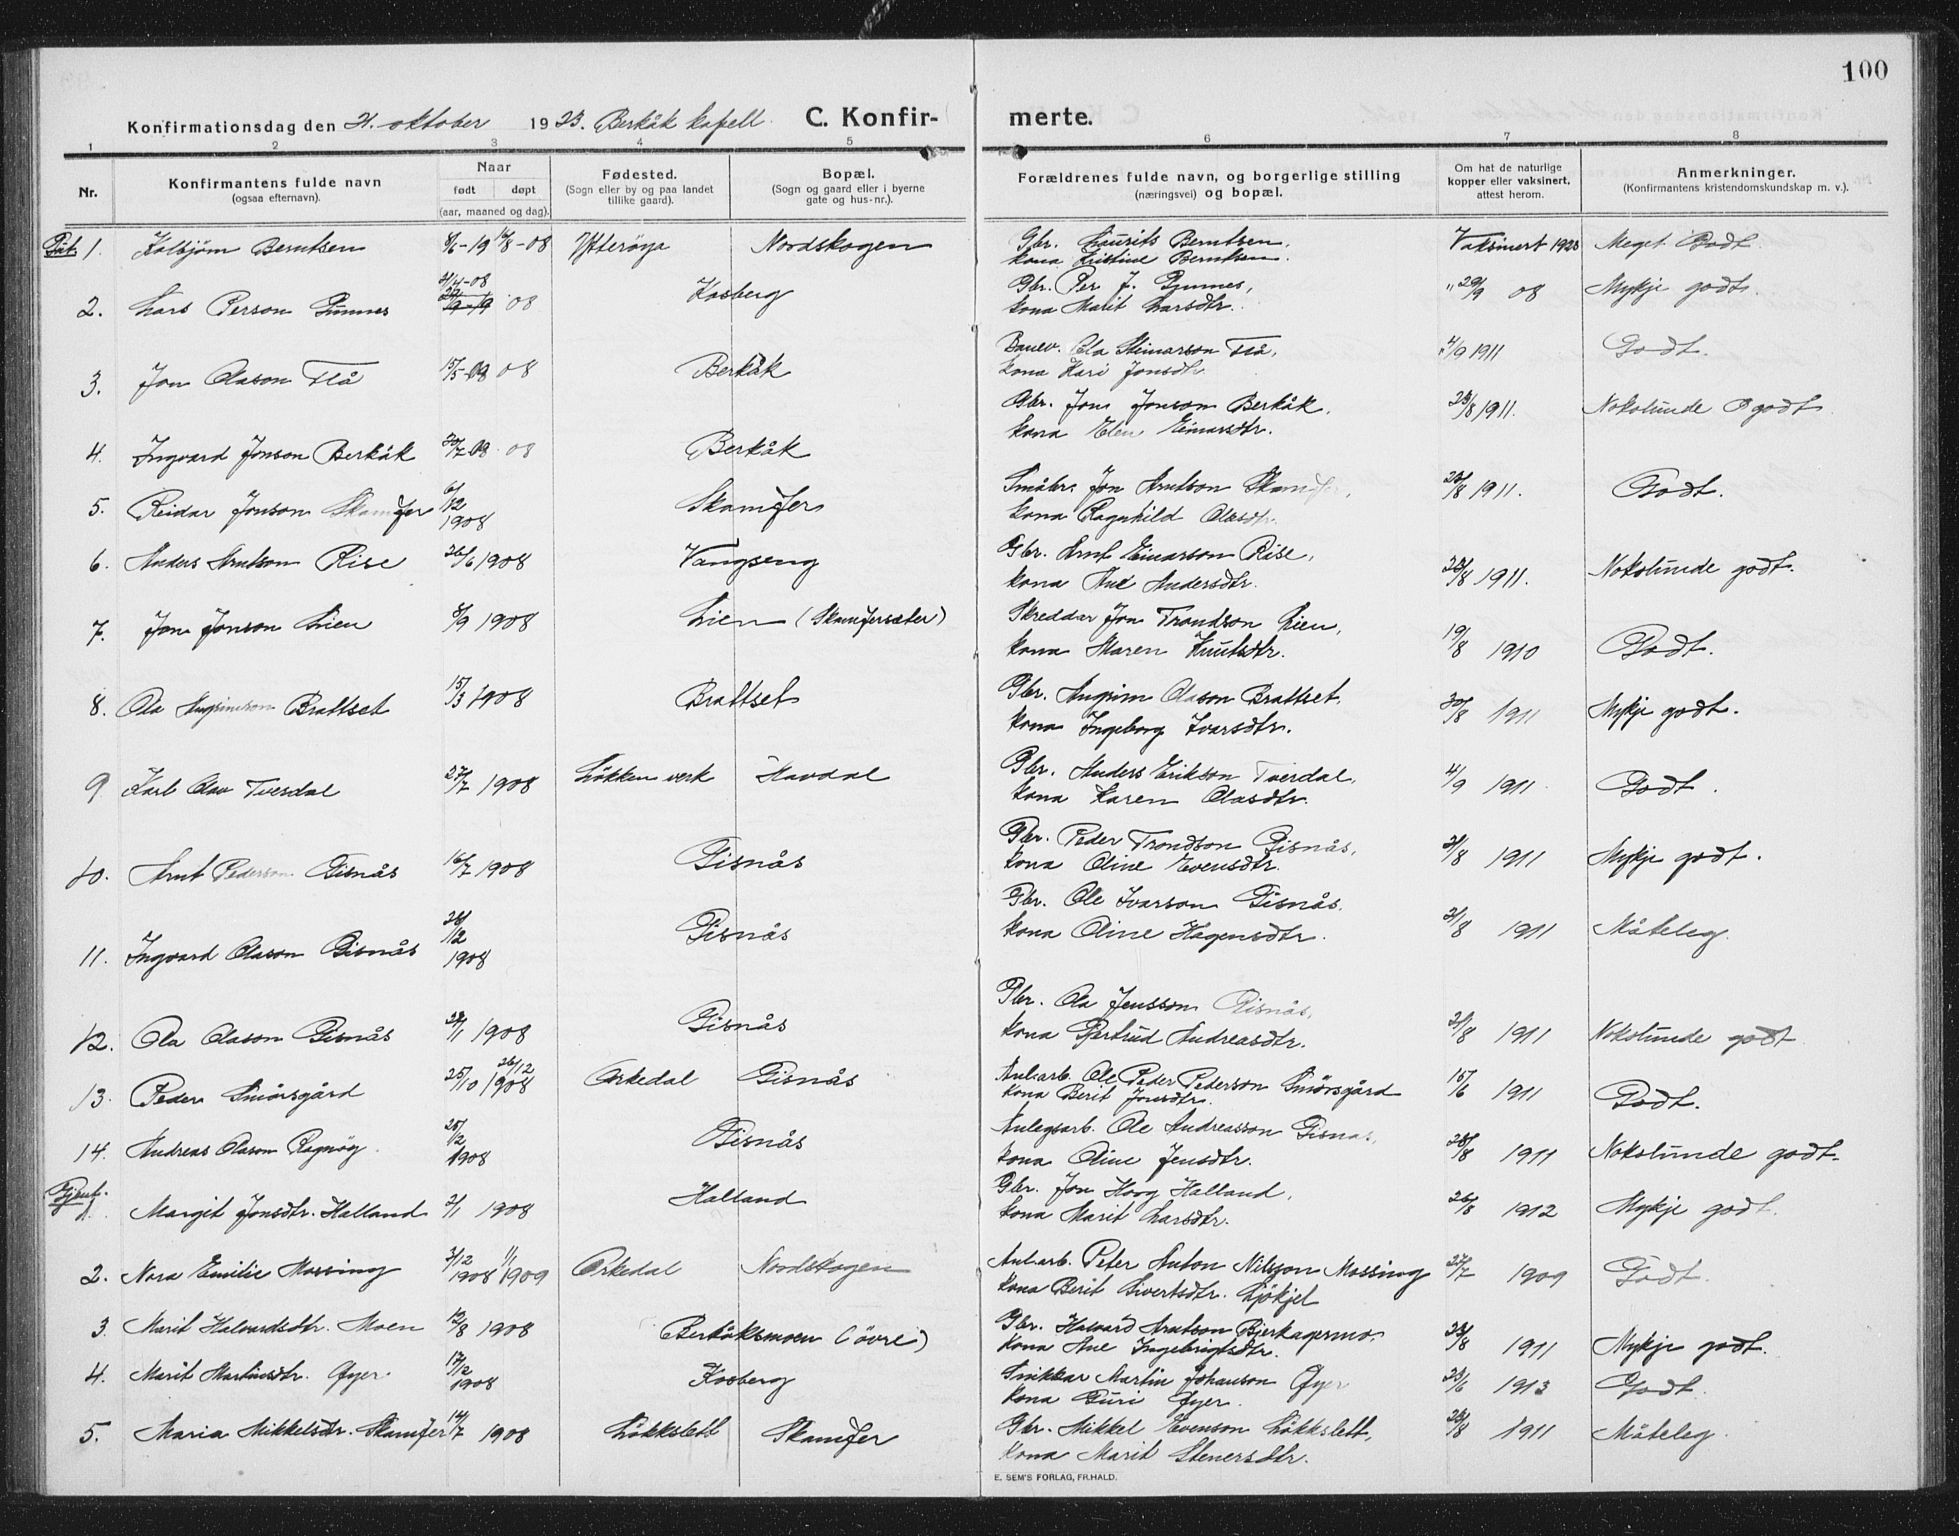 100
Konfirmationsdag den 21. oktober 1923. Berkåk kapell. C. Konfir-merte.
1 2 3 4 5 6 7 8
Nr.
Konfirmantens fulde navn
(ogsaa efternavn).
Naar
født døpt
(aar, maaned og dag).
Fødested.
(Sogn eller by og paa landet
tillike gaard).
Bopæl.
(Sogn og gaard eller i byerne
gate og hus-nr.).
Forældrenes fulde navn, og borgerlige stilling
(næringsvei) og bopæl.
Om hat de naturlige
kopper eller vaksinert,
attest herom.
Anmerkninger.
(Konfirmantens kristendomskundskap m. v.).
1. Kolbjørn Berntsen Ytterøya Nordskogen Gbr. Laurits Berntsen, Vaksinert 1923 Meget Godt
kona Kristine Berntsen.
2. Lars Person Gunnes 21/4-08 Kosberg Gbr. Per J. Gunnes, " 29/9 08 Mykje godt.
kona Marit Larsdtr.
3. Jon Olason Flå 15/5-08 Berkåk Banev. Ola Steinarson Flå, 4/9 1911 Godt.
kona Kari Jonsdtr.
4. Ingvard Jonson Berkåk Berkåk Gbr. Jon Jonson Berkåk, 23/8 1911. Nokolunde godt
kona Elen Einarsdtr.
5. Reidar Jonson Skamfer 6/12 1908 Skamfer Småbr. Jon Arntson Skamfer, 23/8 1911. Godt.
kona Ragnhild Olasdtr.
6. Anders Arntson Rise 26/6 1908 Vangseng Gbr. Arnt Einarson Rise, 23/8 1911. Nokolunde godt.
kona Ane Andersdtr.
7. Jon Jonson Lien 8/9 1908 Lien (Skamfersæter) Skreddar Jon Trondson Lien, 19/8 1910 Godt.
kona Maren Knutsdtr.
8. Ola Angrimson Brattset 15/3 1908 Brattset Gbr. Angrim Olason Brattset, 30/8 1911 Mykje godt.
kona Ingeborg Ivarsdtr.
9 Karl Olav Tverdal 27/7 1908 Løkken verk Havdal Gbr. Anders Erikson Tverdal, 4/9 1911 Godt.
kona Karen Olasdtr.
10. Arnt Pederson Gisnås 16/7 1908 Gisnås Gbr. Peder Trondson Gisnås, 21/8 1911 Mykje godt.
kona Oline Evensdtr.
11. Ingvard Olason Gisnås 26/12 1908 Gisnås Gbr. Ole Ivarson Gisnås, 21/8 1911 Måteleg.
kona Oline Hagensdtr.
12. Ola Olason Gisnås 1908 Gisnås Gbr. Ola Jensson Gisnås, 21/8 1911 Nokolunde godt
kona Gjertrud Andreasdtr.
13. Peder Smørsgård 25/10 1908 26/12 Orkedal Gisnås Anl.arb. Ole Peder Pederson Smørsgård 15/6 1911 Godt.
kona Berit Jonsdtr.
14. Andreas Olason Ragnøy 25/2 1908 Gisnås Anlegsarb. Ole Andreasson Gisnås, 28/8 1911 Nokolunde godt.
kona Oline Jensdtr.
Gjent.
1. Margit Jonsdtr. Halland 2/1 1908 Halland Gbr. Jon Hoog Halland, 26/8 1912 Mykje godt.
kona Marit Larsdtr.
2. Nora Emilie Mossing 3/12 1908 1/1 1909 Orkedal Nordskogen Anl.arb. Peter Anton Nilsson Mossing 27/7 1909 Godt.
kona Berit Sivertsdtr. Ljøkjel
3. Marit Halvardsdtr. Moen 12/8 1908 Berkåksmoen (øvre) Gbr. Halvard Arntson Bjerkagermo. 23/8 1911 Mykje godt.
kona Ane Ingebrigtsdtr.
4. Marit Martinsdtr. Øyer 17/12 1908 Kosberg Snikkar Martin Johanson Øyer 23/6 1913 Godt.
kona Guri Øyer.
5. Maria Mikkelsdtr. Skamfer 14/7 1908 Løkkslett Skamfer Gbr. Mikkel Evenson Løkkslett, 28/8 1911 Måteleg.
kona Marit Stenersdtr.
E. SEM'S FORLAG, FR.HALD.